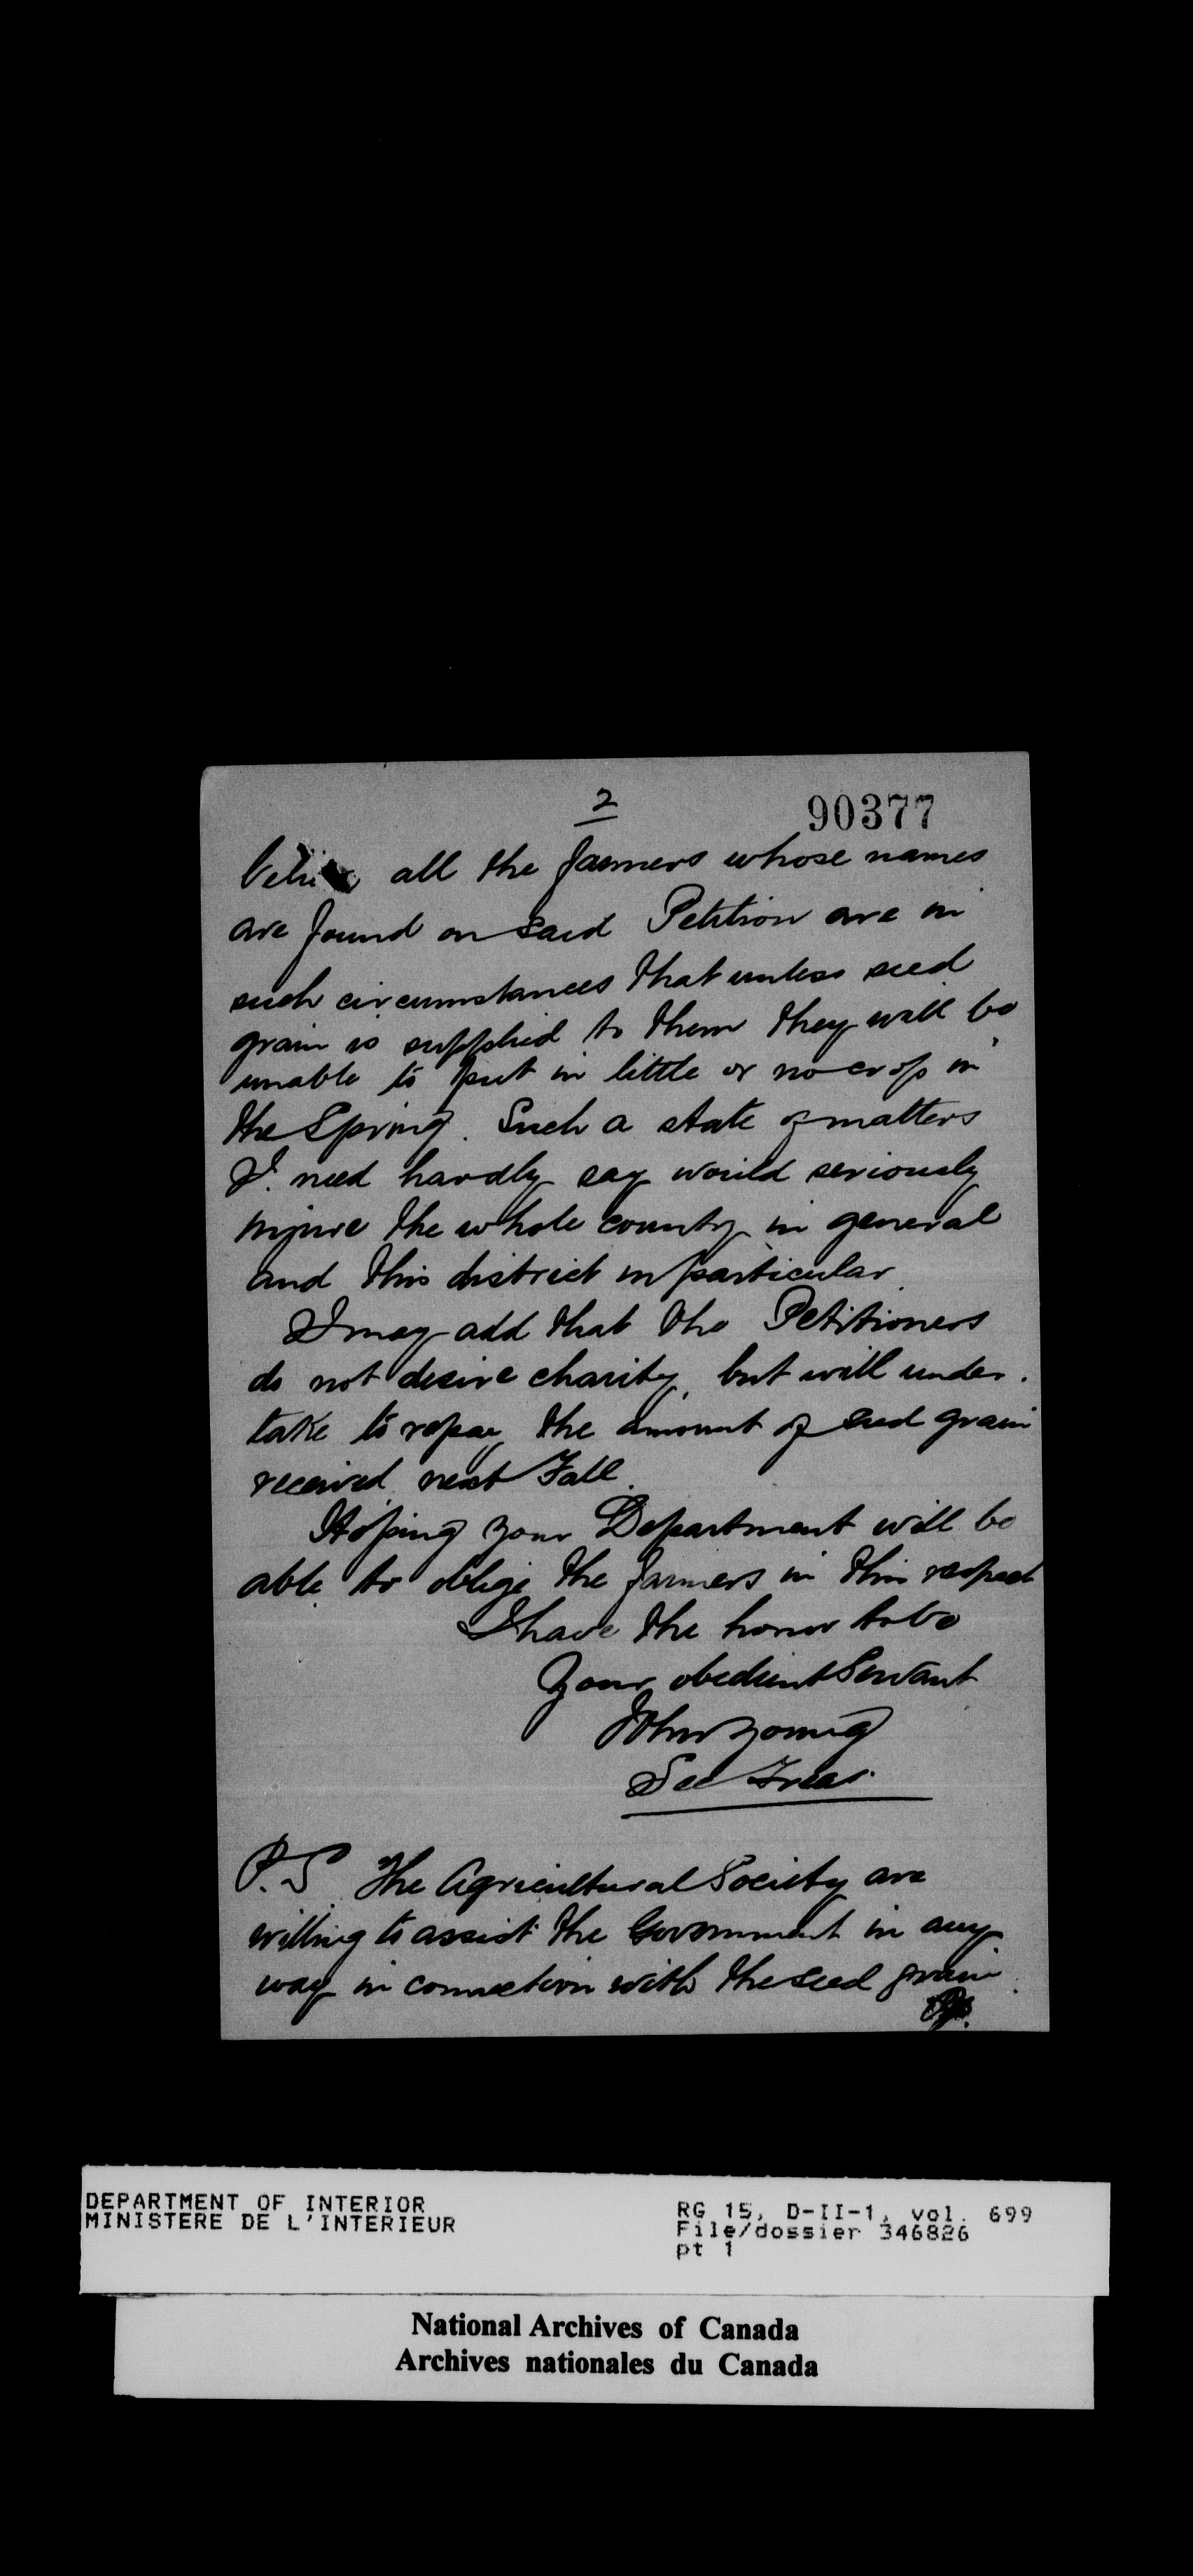 2
90377
all the farmers whose names
are found on said Petition are in
such circumstances that unless seed
grain is supplied to them they will be
unable to put in little or no crop in
the Spring. Such a state of matters
I need hardly say would seriously
injure the whole country in general
and this district in particular.
I may add that the Petitioners
do not desire charity, but will under-
take to repay the amount of seed grain
received next Fall.
Hoping your Department will be
able to oblige the farmers in this respect
I have the honor to be
Your obedient Servant
John Young
Sec Treas.
P.S. The Agricultural Society are
willing to assist the Government in any
way in connection with the seed grain.
DEPARTMENT OF INTERIOR
MINISTERE DE L'INTERIEUR
RG 15, D-II-1, vol. 699
File/dossier 346826
pt 1
National Archives of Canada
Archives nationales du Canada